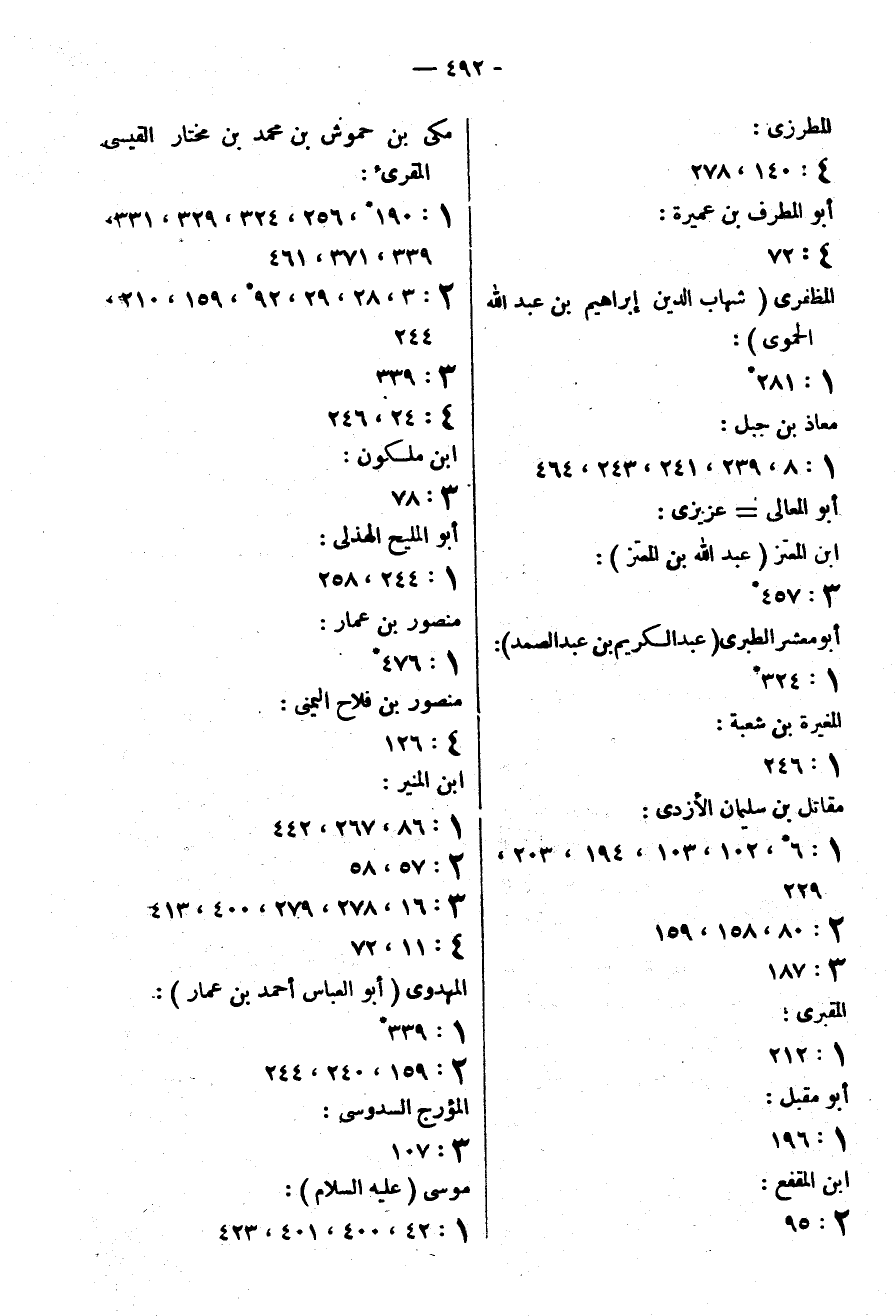 - ٤٩٢ —
المطرزى :
٤ : ١٤٠ ، ٢٧٨
أبو المطرف بن عميرة :
٤ : ٧٢
المظفرى ( شهاب الدين إبراهيم بن عبد الله
الحموى ) :
١ : ٢٨١*
معاذ بن جبل :
١ : ٨ ، ٢٣٩ ، ٢٤١ ، ٢٤٣ ، ٤٦٤
أبو المعالى = عزيزى :
ابن المعتز ( عبد الله بن المعتز ) :
٣ : ٤٥٧*
أبو معشر الطبرى ( عبد الكريم بن عبد الصمد ) :
١ : ٣٢٤*
المغيرة بن شعبة :
١ : ٢٤٦
مقاتل بن سليمان الأزدى :
١ : ٦* ، ١٠٢ ، ١٠٣ ، ١٩٤ ، ٢٠٣ ،
٢٢٩
٢ : ٨٠ ، ١٥٨ ، ١٥٩
٣ : ١٨٧
المقبرى :
١ : ٢١٢
أبو مقبل :
١ : ١٩٦
ابن المقفع :
٢ : ٩٥
مكى بن حموش بن محمد بن مختار القيسى
المقرىء :
١ : ١٩٠* ، ٢٥٦ ، ٣٢٤ ، ٣٢٩ ، ٣٣١ ،
٣٣٩ ، ٣٧١ ، ٤٦١
٢ : ٣ ، ٢٨ ، ٢٩ ، ٩٢* ، ١٥٩ ، ٢١٠ ،
٢٤٤
٣ : ٣٣٩
٤ : ٢٤ ، ٢٤٦
ابن ملكون :
٣ : ٧٨
أبو المليح الهذلى :
١ : ٢٤٤ ، ٢٥٨
منصور بن عمار :
١ : ٤٧٦*
منصور بن فلاح اليمنى :
٤ : ١٢٦
ابن المنير :
١ : ٨٦ ، ٢٦٧ ، ٤٤٢
٢ : ٥٧ ، ٥٨
٣ : ١٦ ، ٢٧٨ ، ٢٧٩ ، ٤٠٠ ، ٤١٣
٤ : ١١ ، ٧٢
المهدوى ( أبو العباس أحمد بن عمار ) :
١ : ٣٣٩*
٢ : ١٥٩ ، ٢٤٠ ، ٢٤٤
المؤرج السدوسى :
٣ : ١٠٧
موسى ( عليه السلام ) :
١ : ٤٢ ، ٤٠٠ ، ٤٠١ ، ٤٢٣